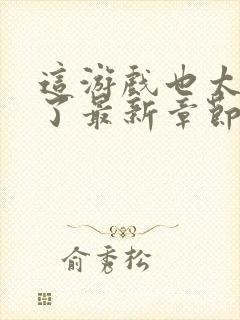 這游戲也太
了最新章節
俞秀松